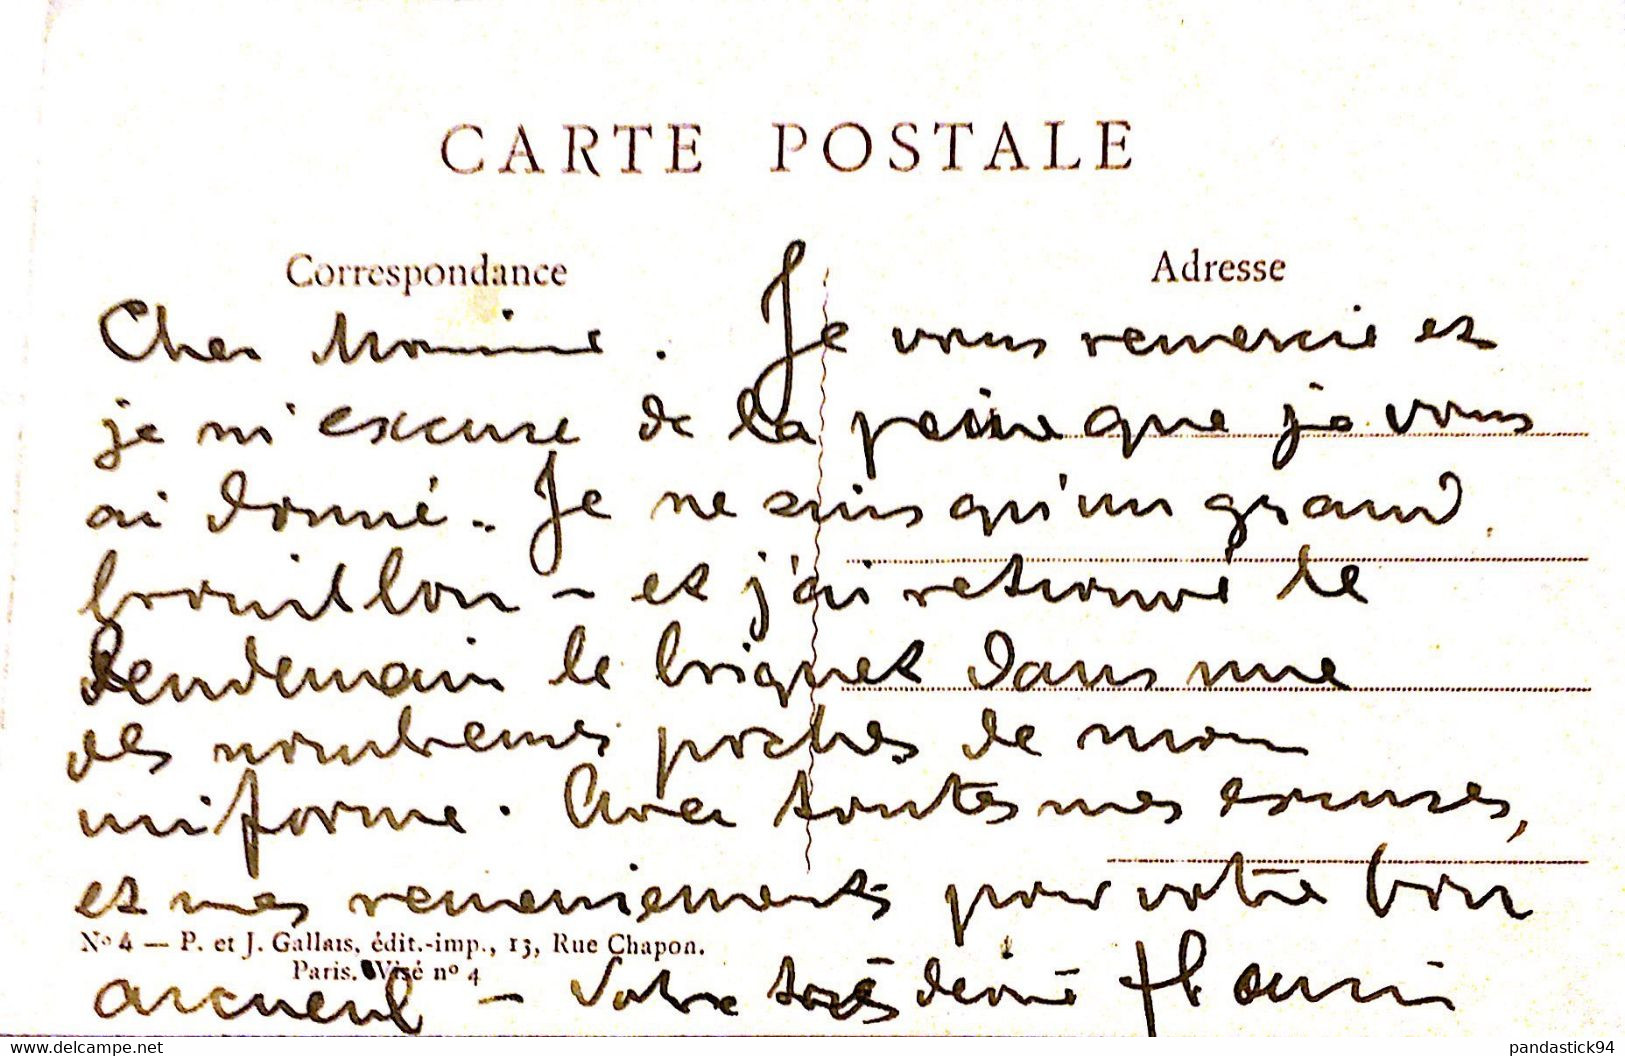 CARTE POSTALE
Correspondance
Adresse
Cher . Je vous remercie et
je m'excuse de la peine que je vous
ai donné. Je ne suis qu'un grand
brouillon - et j'ai retrouvé le
lendemain le briquet dans une
des nombreuses poches de mon
uniforme. Avec toutes mes excuses,
et mes remerciements pour votre bon
accueil - Votre très
N° 4 — P. et J. Gallais, édit.-imp., 13, Rue Chapon.
Paris. Visé n° 4
delcampe.net
pandastick94